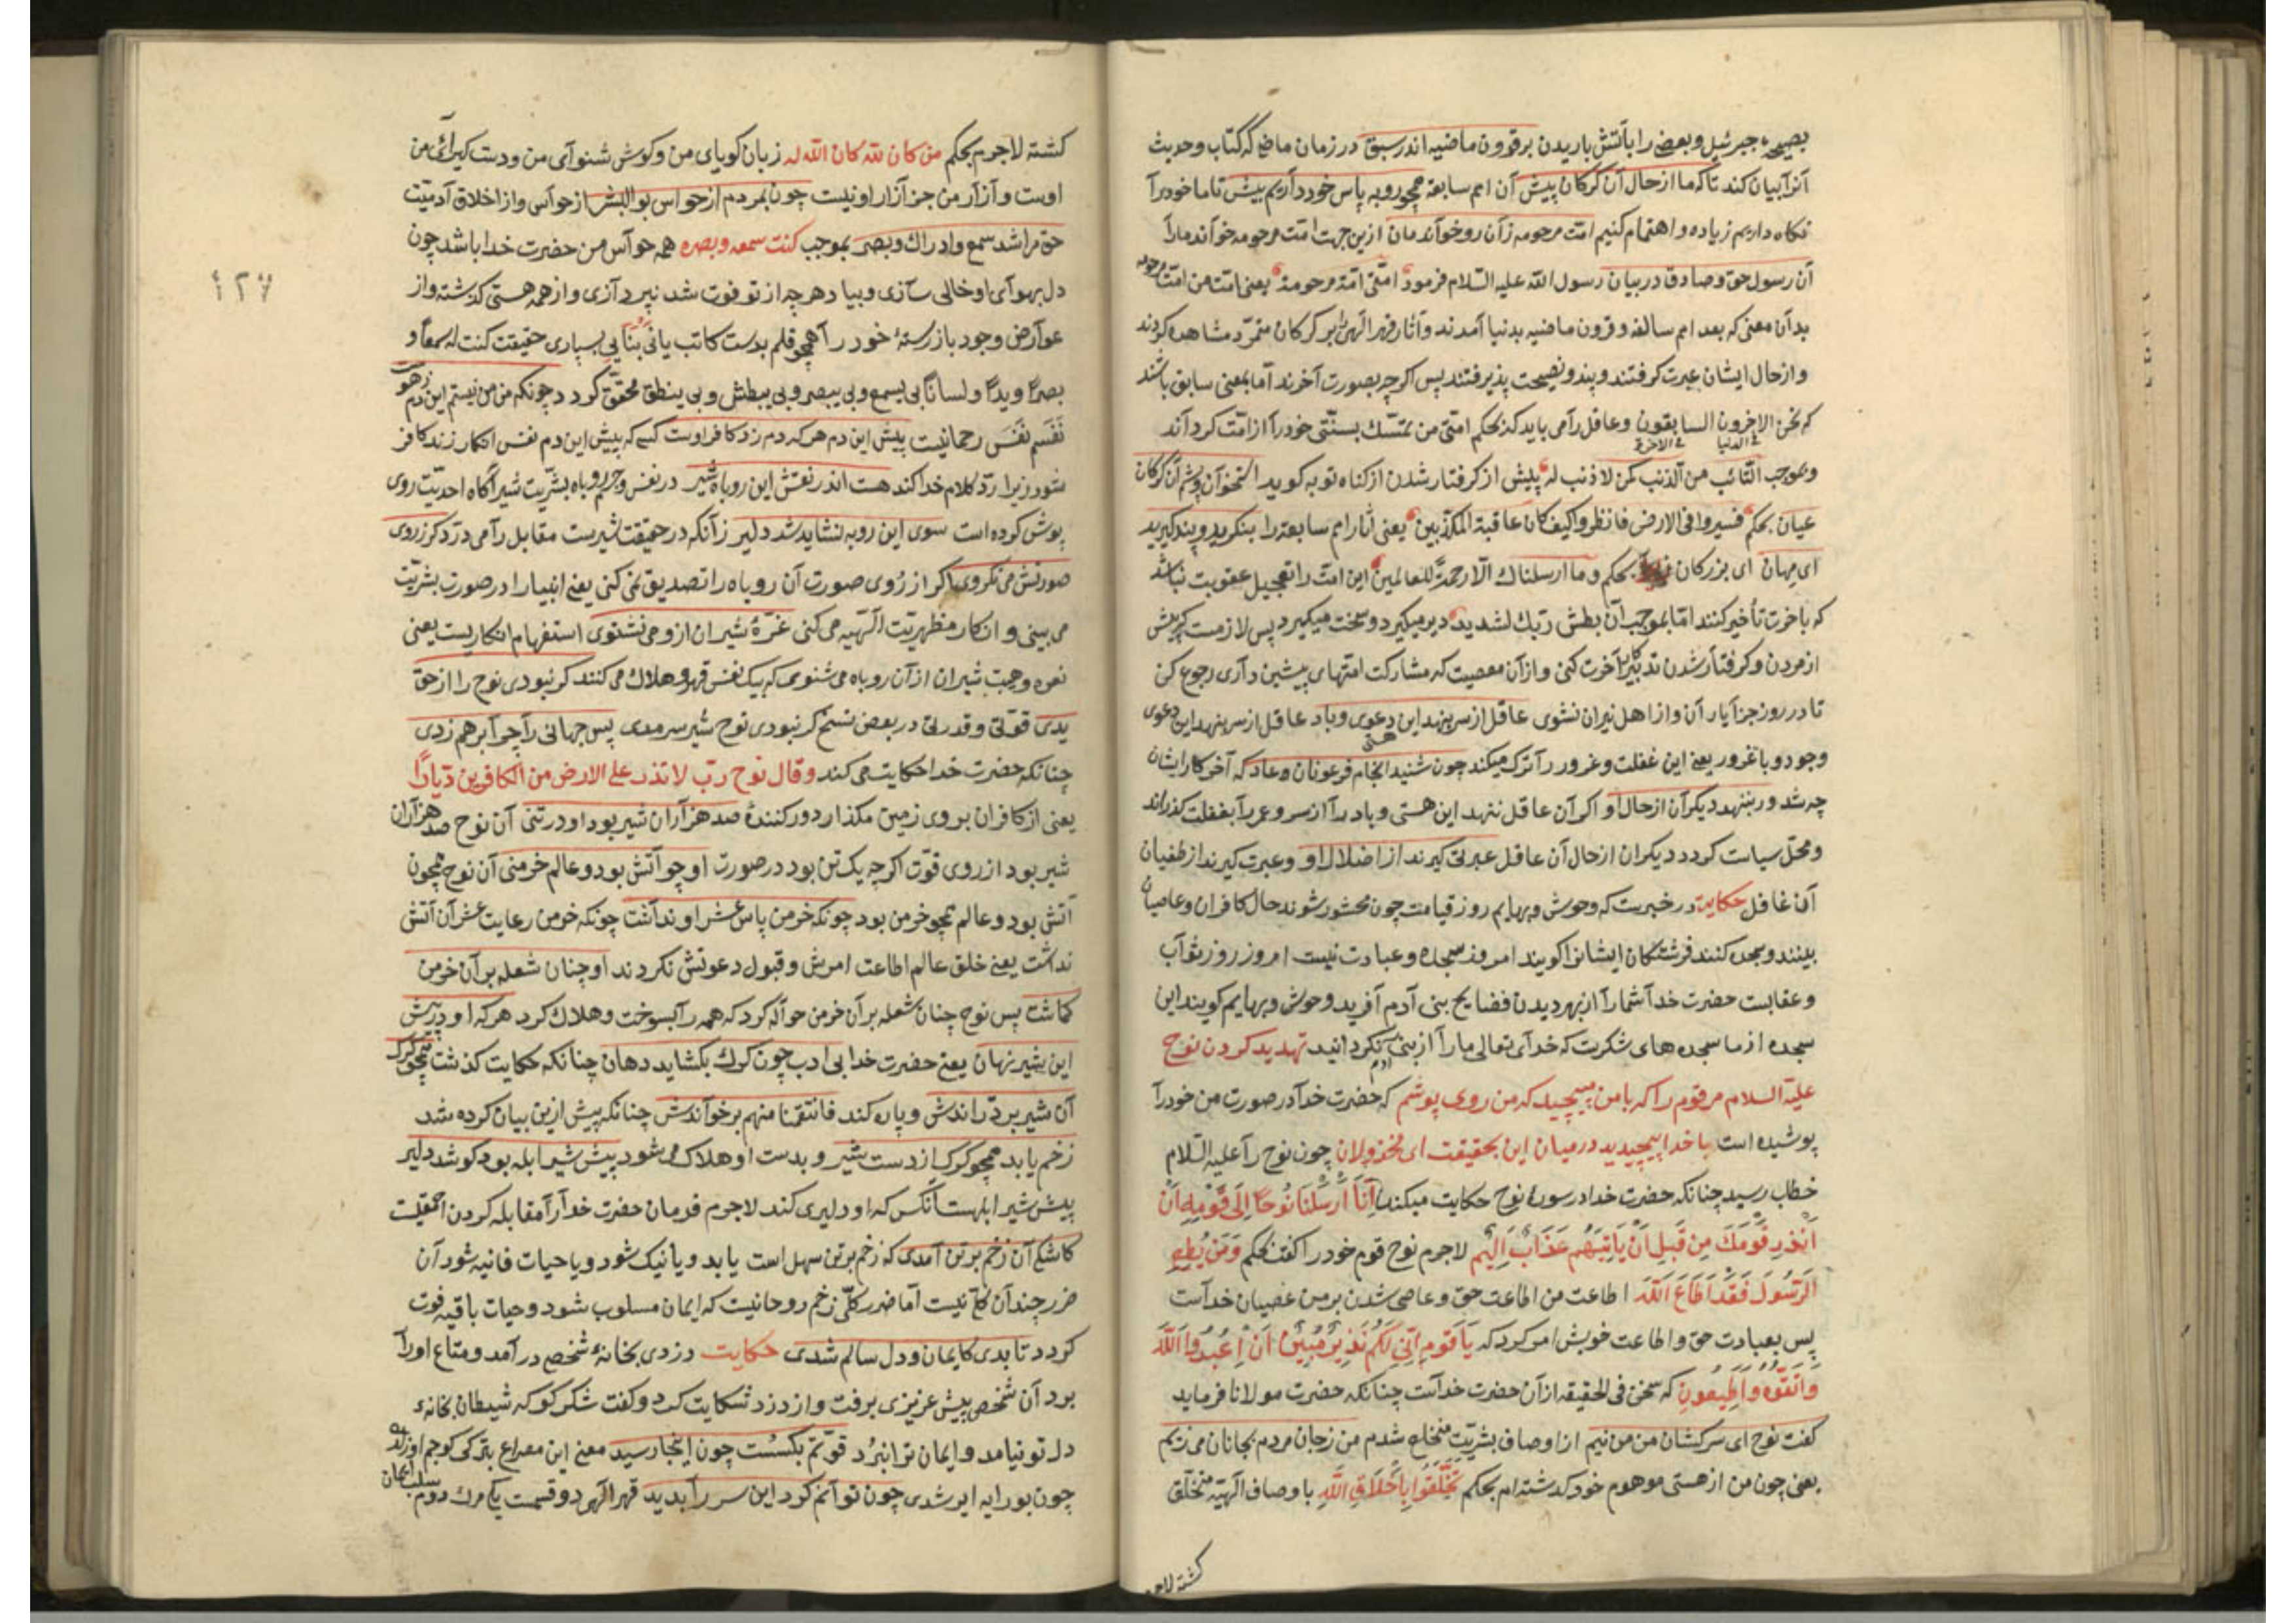 بصیحهٔ جبرئیل و بعضی را بآتش باریدن بر قرون ماضیه اندر سبق در زمان ماضی که کتاب و حدیث
آنرا بیان کند تا که ما از حال آن گرکان پیش آن امم سابقه همچو روبه پاس خود داریم بیش تا ما خود را
نکاه داریم زیاده و اهتمام کنیم امّت مرحومه زآن رو خواندمان ازین جهت امّت مرحومه خواند ما را
آن رسول حقّ و صادق در بیان رسول الله علیه السّلام فرمود امّتی امّة مرحومة یعنی امّت من امّت مرحومه
بدان معنی که بعد امم سالفه و قرون ماضیه بدنیا آمدند و آثار قهر الهی را بر کرکان متمرّد مشاهده کردند
و از حال ایشان عبرت کرفتند و پند و نصیحت پذیرفتند پس اکرچه بصورت آخرند امّا بمعنی سابق باشند
که نحن الآخرون السابقون و عاقل را می باید که بحکم امّتی من تمسّك بسنّتی خود را از امّت کرداند
فی الدنیا فی الآخرة
و بموجب التّائب من الذّنب کمن لا ذنب له پیش از کرفتار شدن از کناه توبه کوید استخوان و پشم آن کرکان
عیان بحکم فسیروا فی الارض فانظروا کیف کان عاقبة المکذّبین یعنی آثار امم سابقه را بنکرید و پند کیرید
ای مهان ای بزرکان بحکم و ما ارسلناك الّا رحمة للعالمین این امّت را تعجیل عقوبت نباشد
که باخرت تأخیر کنند امّا بموجب ان بطش ربّك لشدید دیر میکیرد و سخت میکیرد پس لازمست که پیش
از مردن و کرفتار شدن تدبیر کار آخرت کنی و از آن معصیت که مشارکت امّتهای پیشین داری رجوع کن
تا در روز جزا یار آن و از اهل نیران نشوی عاقل از سر بنهد این دعوی و باد عاقل از سر بنهد این دعوی
هستی
وجود و باغرور یعنی این غفلت و غرور را ترك میکند چون شنید انجام فرعونان و عاد که آخر کار ایشان
چه شد ور بنهد دیکران از حال او اکر آن عاقل ننهد این هستی و باد را از سر و عمر را بغفلت کذراند
و محلّ سیاست کردد دیکران از حال آن عاقل عبرتی کیرند از اضلال او و عبرت کیرند از طغیان
آن غافل حکایت در خبرست که وحوش و بهایم روز قیامت چون محشور شوند حال کافران و عاصیان
بینند و سجده کنند فرشتکان ایشانرا کویند امروز سجده و عبادت نیست امروز روز ثواب
و عقابست حضرت خدا شما را از بهر دیدن فضایح بنی آدم آفرید وحوش و بهایم کویند این
سجده از ما سجده های شکرست که خدای تعالی ما را از بنی آدم نکردانید تهدید کردن نوح
علیه السلام مر قوم را که با من مپیچید که من روی پوشم که حضرت خدا در صورت من خود را
پوشیده است با خدا پیچیدید در میان این بحقیقت ای مخذولان چون نوح را علیه السّلام
خطاب رسید چنانکه حضرت خدا در سورهٔ نوح حکایت میکند إِنَّا أَرْسَلْنَا نُوحًا إِلَى قَوْمِهِ أَنْ
أَنْذِرْ قَوْمَكَ مِنْ قَبْلِ أَنْ يَأْتِيَهُمْ عَذَابٌ أَلِيمٌ لاجرم نوح قوم خود را کفت بحکم وَمَنْ يُطِعِ
الرَّسُولَ فَقَدْ أَطَاعَ اللَّهَ اطاعت من اطاعت حقّ و عاصی شدن بر من عصیان خداست
پس بعبادت حقّ و اطاعت خویش امر کرد که يَا قَوْمِ إِنِّي لَكُمْ نَذِيرٌ مُبِينٌ أَنِ اعْبُدُوا اللَّهَ
وَاتَّقُوهُ وَأَطِيعُونِ که سخن فی الحقیقه از آن حضرت خداست چنانکه حضرت مولانا فرماید
کفت نوح ای سرکشان من من نیم از اوصاف بشریّت منخلع شدم من زجان مردم بجانان می زیم
یعنی چون من از هستی موهوم خود کذشته ام بحکم تَخَلَّقُوا بِأَخْلَاقِ اللَّهِ با وصاف الهیّه متخلّق
کشته لاجرم
٤٢٧
کشته لاجرم بحکم من کان لله کان الله له زبان کویای من و کوش شنوای من و دست کیرای من
اوست و آزار من جز آزار او نیست چون بمردم از حواس بو البشر از حواس و از اخلاق آدمیّت
حقّ مرا شد سمع و ادراك و بصر بموجب کنت سمعه و بصره همه حواس من حضرت خدا باشد چون
دل بهوای او خالی سازی و بیاد هرچه از تو فوت شد نپردازی و از همه هستی کذشته و از
عوارض وجود باز رستهٔ خود را همچو قلم بدست کاتب یا بنّایی بسپاری حقیقت کنت له سمعاً و
بصراً و یداً و لساناً بی یسمع و بی یبصر و بی یبطش و بی ینطق محقّق کردد چونکه من من نیستم این دم ز هوست
نَفَسم نَفَس رحمانیست پیش این دم هر که دم زد کافر اوست کسی که پیش این دم نفس انکار زند کافر
شود زیرا ردّ کلام خدا کند هست اندر نقش این روباه شیر در نفس و جرم روباه بشریّت شیر آکاه احدیّت روی
پوش کرده است سوی این روبه نشاید شد دلیر زآنکه در حقیقت شیرست مقابل را می درد کر ز روی
صورتش می نکروی اکر از روی صورت آن روباه را تصدیق نمی کنی یعنی انبیا را در صورت بشریّت
می بینی و انکار مظهریّت الهیّه می کنی غرّهٔ شیران ازو می نشنوی استفهام انکاریست یعنی
نعره و هیبت شیران از آن روباه می شنوی که بیك نفس قهر و هلاك می کنند کر نبودی نوح را از حقّ
یدی قوّتی و قدرتی در بعض نسخ کر نبودی نوح شیر سرمدی پس جهانی را چرا بر هم زدی
چنانکه حضرت خدا حکایت می کند وقال نوح ربّ لا تذر علی الارض من الکافرین دیّاراً
یعنی از کافران بر روی زمین مکذار دور کنندهٔ صد هزاران شیر بود او در تنی آن نوح صد هزاران
شیر بود از روی قوّت اکرچه یك تن بود در صورت او چو آتش بود و عالم خرمنی آن نوح همچون
آتش بود و عالم همچو خرمن بود چونکه خرمن پاس عشر او نداشت چونکه خرمن رعایت عشر آن آتش
نداشت یعنی خلق عالم اطاعت امرش و قبول دعوتش نکردند او چنان شعله بر آن خرمن
کماشت پس نوح چنان شعله بر آن خرمن حواله کرد که همه را بسوخت و هلاك کرد هر که او در پیش
این شیر نهان یعنی حضرت خدا بی ادب چون کرك بکشاید دهان چنانکه حکایت کذشت همچو کرك
آن شیر بردّراندش و پاره کند فانتقمنا منهم برخواندش چنانکه پیش ازین بیان کرده شد
زخم یابد همچو کرك از دست شیر و بدست او هلاك می شود پیش شیر ابله بود کو شد دلیر
پیش شیر ابلهست آنکس که او دلیری کند لاجرم فرمان حضرت خدا را مقابله کردن احمقیست
کاشکی آن زخم بر تن آمدی که زخم بر تن سهل است یابد و یا نیك شود و یا حیات فانیه شود آن
ضرر چندان کلّی نیست امّا ضرر کلّی زخم روحانیست که ایمان مسلوب شود و حیات باقیه فوت
کردد تا بدی کایمان و دل سالم شدی حکایت دزدی بخانهٔ شخصی درآمد و متاع او را
برد آن شخص پیش عزیزی برفت و از دزد شکایت کرد و کفت شکر کو که شیطان بخانهٔ
دل تو نیامد و ایمان ترا نبرد قوّتم بکسست چون اینجا رسید معنی این مصراع بترکی کوجم اوزلدی
چون بو رایه ایرشدی چون توانم کرد این سر را بدید قهر الهی دو قسمت یکی مرك دوم سلب ایمان